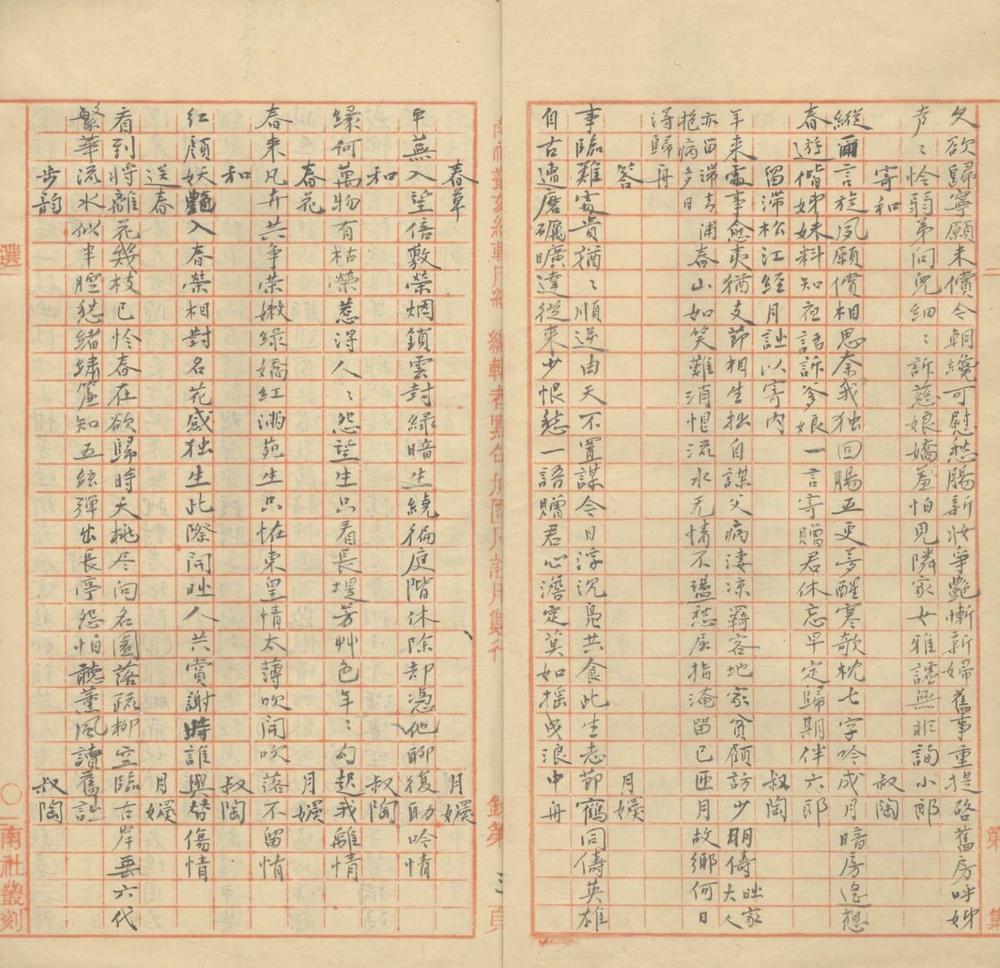 久欲歸寧願未償今朝纔可慰愁腸新妝爭艷慚新婦舊事重提啓舊房呼姊
聲〻怜弱弟問兒細〻訴慈娘嬌羞怕見隣家女雅謔無非詢小郎
寄和 叔陶
縱爾言旋夙願償相思奈我独回腸五更夢醒寒欹枕七字吟成月暗房遙想
春遊偕姊妹料知夜話訴爹娘一言寄贈君休忘早定歸期伴六郎
留滯松江經月詘以寄内 叔陶
年來處事愈夷猶支節相生拙自謀父病淒凉羇客地家貧顧訪少朋儔大人
亦留滯青浦抱病多日春山如笑難消恨流水无情不盪愁屈指淹留已匝月故鄉何日
得歸舟
答 月嬡
事臨難處貴猶〻順逆由天不置謀今日浮沉凫共食此生志節鶴同儔英雄
自古遭磨礪曠達從來少恨愁一語贈君心澹定莫如摇曵浪中舟
春草 月嬡
平蕪入望倍敷榮烟鎖雲封綠暗生繞徧庭階休除却憑他聊復助吟情
和 叔陶
綠何萬物有枯榮惹得人〻怨望生只看長堤芳艸色年〻勾起我離情
春花 月嬡
春来凡卉共争荣嫩綠嬌紅滿苑生只恠東皇情太薄吹開吹落不留情
和 叔陶
紅顏妖艷入春榮相對名花感独生此際開時人共賞謝時誰與替傷情
送春 月嬡
看到將離花幾枝已怜春在欲歸時夭桃尽向名園落疏柳空臨古岸垂六代
繁華流水似半腔愁緒繡簾知五絃彈出長亭怨怕聽薰风讀舊詘
步韵 叔陶
選 〇 南社叢刻
三頁
第 集